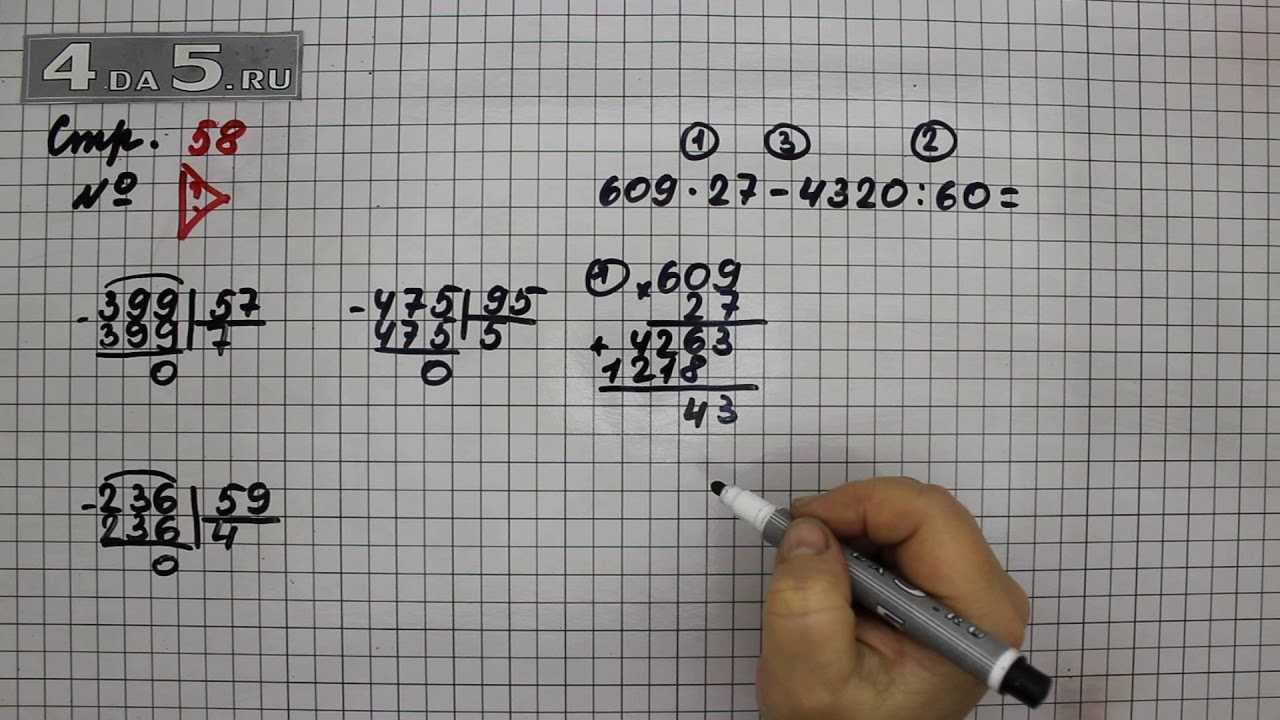 4DA5.RU
Стр. 58
№
1 3 2
609 · 27 - 4320 : 60 =
- 399 | 57
399 | 7
0
- 475 | 95
475 | 5
0
1 × 609
27
+ 4263
1218
43
- 236 | 59
236 | 4
0